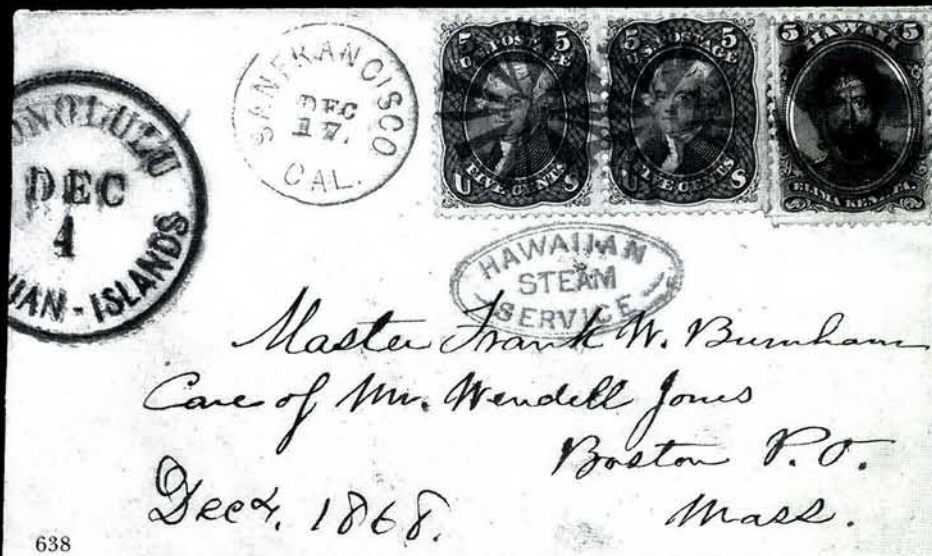 HONOLULU
DEC
1
HAWAIIAN-ISLANDS
SAN FRANCISCO
DEC
17.
CAL.
5 U.S. POSTAGE 5
U FIVE CENTS S
5 U.S. POSTAGE 5
U FIVE CENTS S
5 HAWAII 5
ELIMA KENETA.
HAWAIIAN
STEAM
SERVICE
Master Frank W. Burnham
Care of Mr. Wendell Jones
Boston P.O.
Mass.
Dec 1868.
638